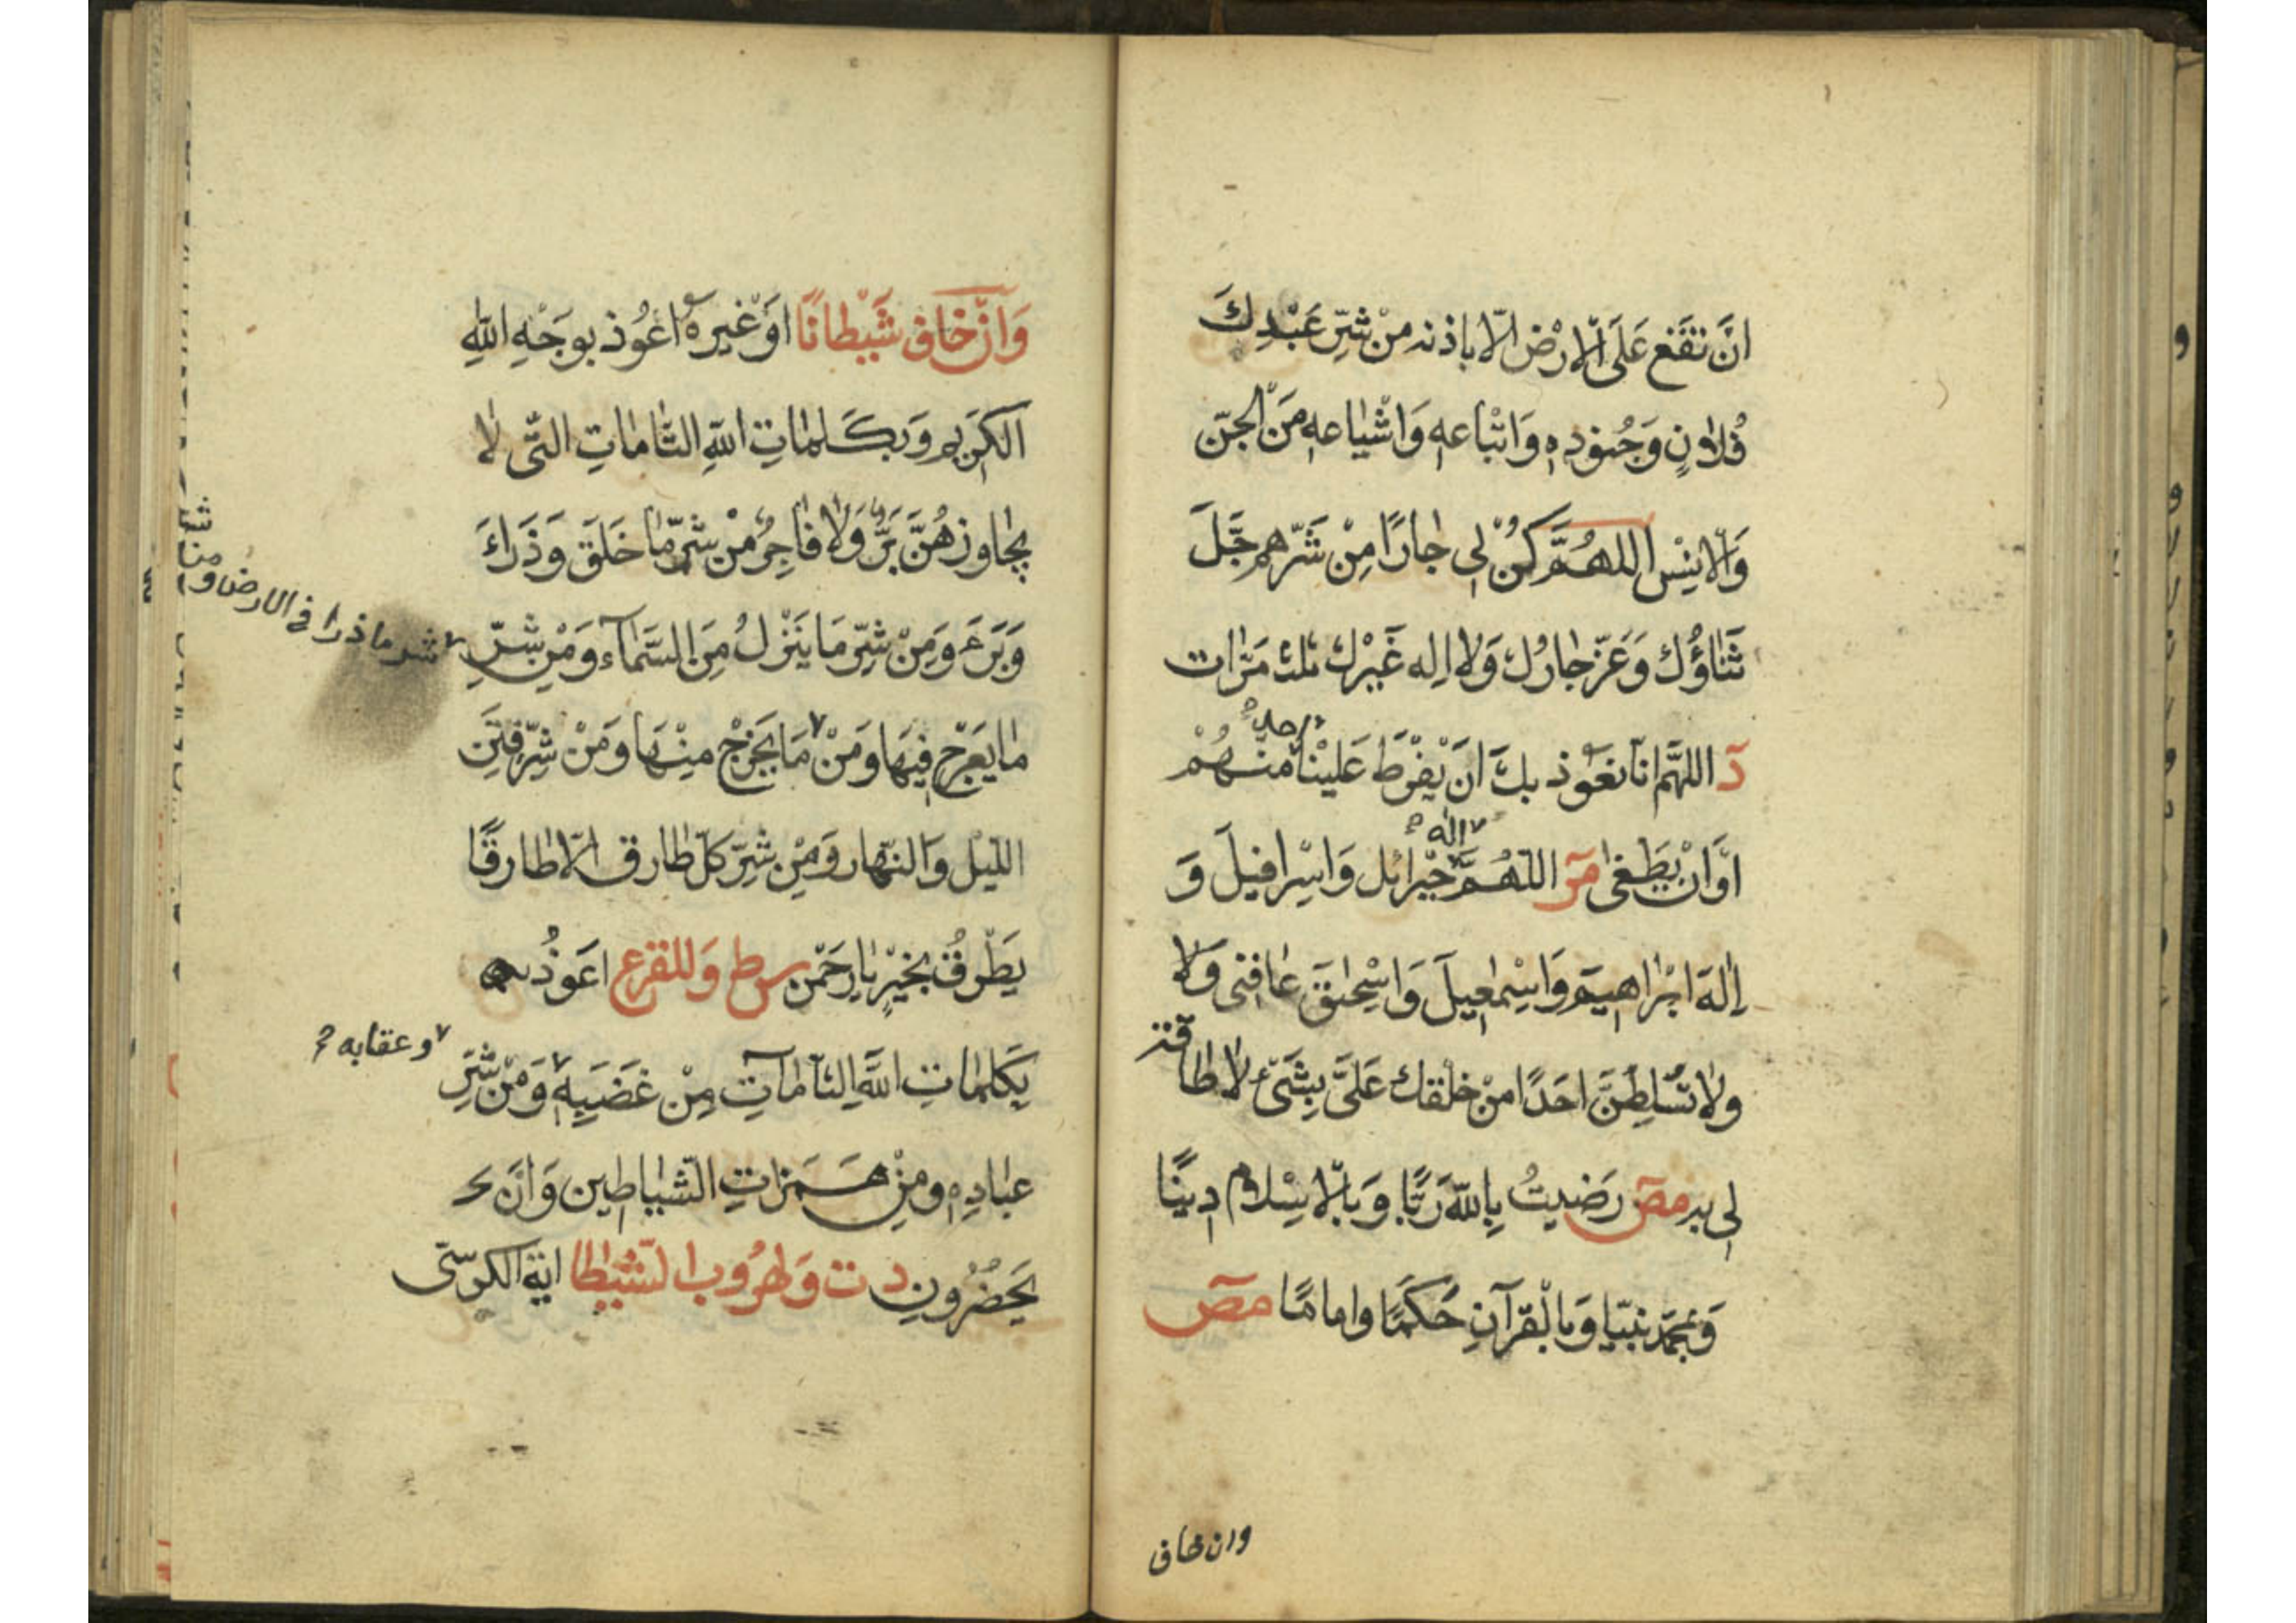 انَّ تقَع عَلَى الْارْض الّا باذنه منْ شرِّ عَبْدِكَ
فُلانٍ وَجُنودِهِ وَاتْباعهِ وَاشْياعهِ مَنَ الْجنّ
وَالْانِسْ اللهُمَّ كُنْ لِى جارًا مِنْ شَرِّهم جَلَّ
ثَناؤُكَ وَعَزّ جارُكَ وَلا اِله غَيْرك ثلث مَرّات
دَ اللهَّم انّا نعَوذ بكَ انَ يَفْرَطَ عَليْنا منْهُمْ
احد
اوَ انْ يَطَغى مَر اللّهُمَّ جبْرائل وَاسْرافيلَ وَ
اله
اِلهَ ابْراهيَم وَاسِمْعيلَ وَاسْحٰقَ عٰافنى وَلا
ولا تسُلطنَّ احَدًا منْ خلْقك عَلىَّ بِشَىْءٍ لا طاقة
لِى به مصَ رَضيتُ بِاللهَ رَبًّا وَبالْاسِْلام دينًا
وَبمحَمّد نبَيّا وَبالْقرْآنِ حَكمًا واماما مصَ
وان خاف
وَانْ خَافَ شَيْطانًا اوَ غْيرهُ اعوُذ بوجَهِْ اللهِ
الكَرِيم وَبكَلماتِ اللهِ التّاماتِ التّى لا
يجاوزهُنَّ بَرٌّ وَلا فاجرٌ منْ شرِّ ما خَلَق وَذَراءَ
وَبَرَءَ وَمِنْ شرِّ مَا يَنْزلُ مِنَ السَّماَء وَمْنِ شرِّ
شر ما ذرا فى الارض ومن
ما يعَرْج فيِهَا وَمنْ مَا يَخْرج منِْهَا وَمنْ شرِّ فتَِن
اللّيل وَالنّهار وَمِنْ شرِّ كلّ طارق الّا طارقًا
يَطْرقُ بخيْرٍ يا رحَمن سِ ط وَللفزع اعَوذُ
بكَلماتِ اللهَّ التّاماّتِ مِنْ غَضَبهِ وَمنْ شَرِّ
وعقابه
عبادِهِ ومنِْ همَزاتِ الشّياطين وَانْ
يحَضُرُونِ د ت وَلهرُوب الشّيطا اية الكرسّى